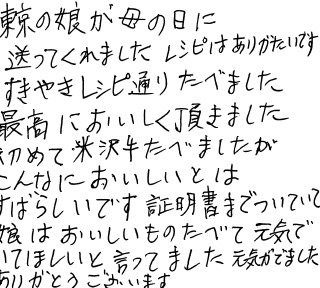 東京の娘が母の日に
送ってくれました レシピはありがたいです
すきやきレシピ通りたべました
最高においしく頂きました
初めて米沢牛たべましたが
こんなにおいしいとは
すばらしいです 証明書までついていて
娘はおいしいものたべて元気で
いてほしいと言ってました 元気がでました
ありがとうございます